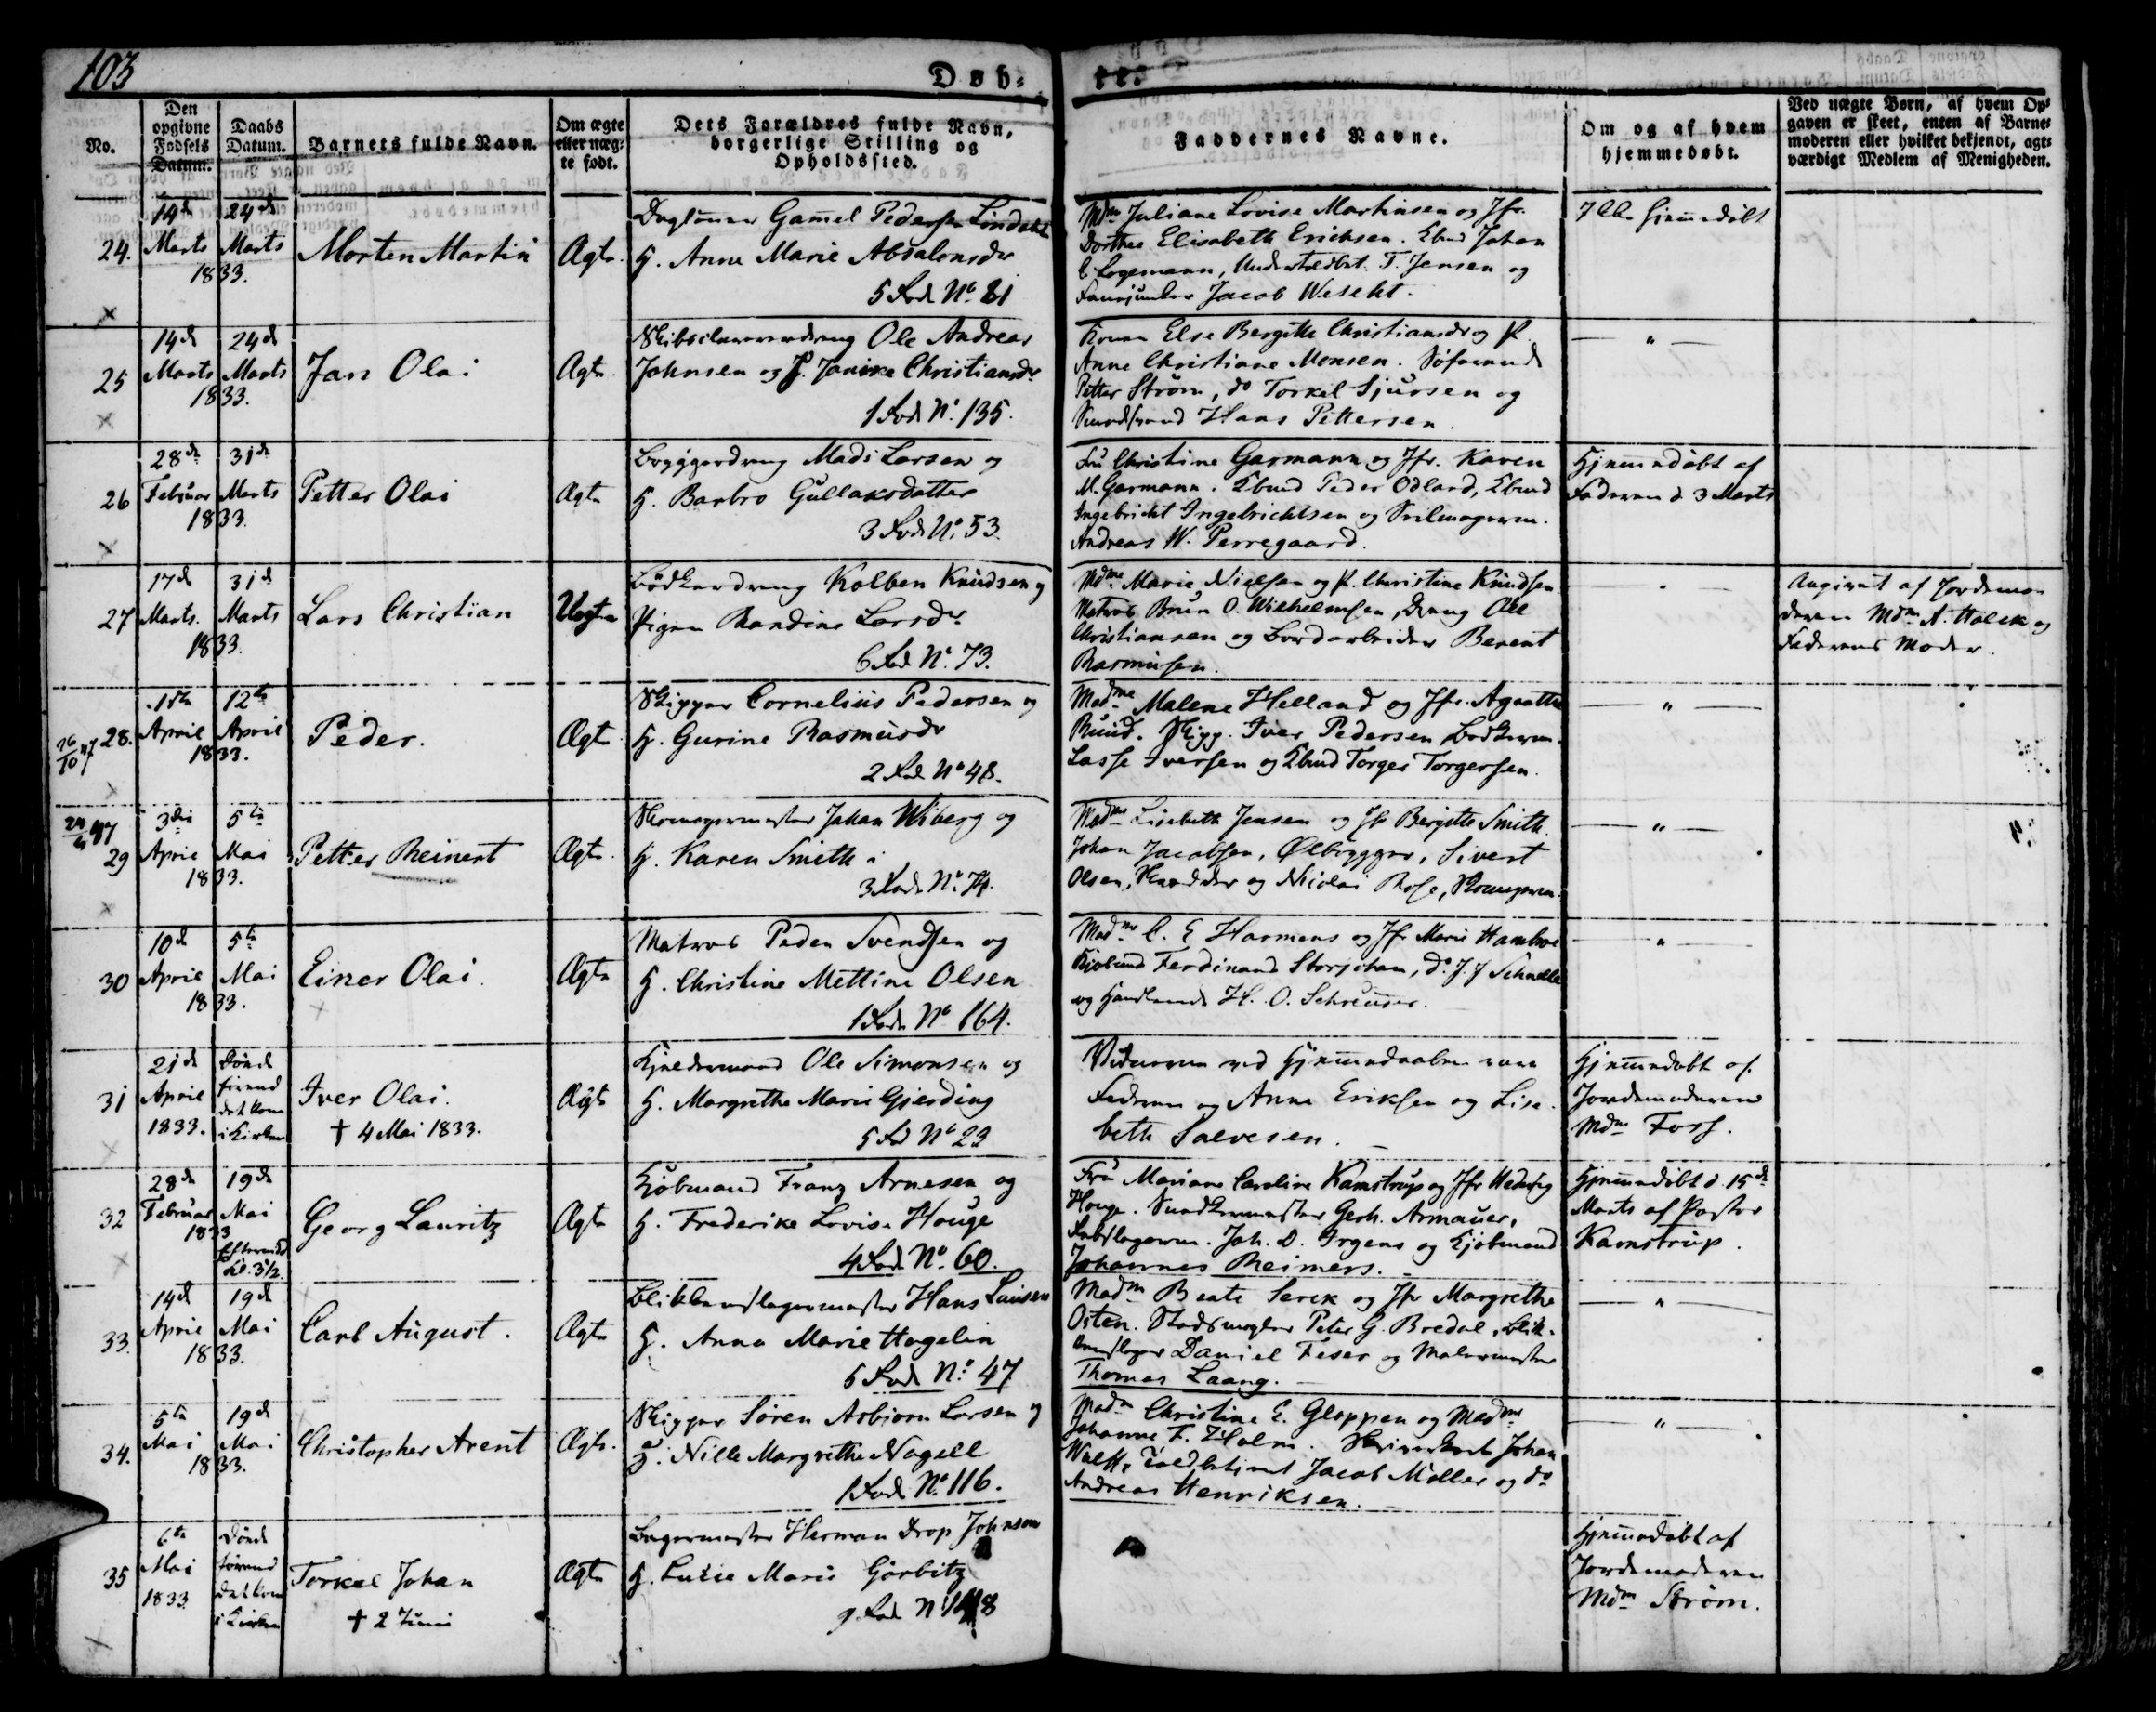 103
Døb-
te.
No.
Den
opgivne
Fødsels
Datum.
Daabs
Datum.
Barnets fulde Navn.
Om ægte
eller uæg-
te født.
Dets Forældres fulde Navn,
borgerlige Stilling og
Opholdssted.
Faddernes Navne.
Om og af hvem
hjemmedøbt.
Ved uægte Børn, af hvem Op-
gaven er skeet, enten af Barne-
moderen eller hvilket bekjendt, agt-
værdigt Medlem af Menigheden.
24.
14de
Marts
24de
Marts
1833.
Morten Martin
Ægte.
Gamel Pedersen Lindahl
H. Anne Marie Absalonsdr
5 Rode No. 21
Mdm Juliane Lovise Martinsen og Jfr.
Dorthea Elisabeth Erichsen. Kbmd Johan
C Logemann, T. Jensen og
Jacob Wesekt.
25
14de
Marts
24de
Marts
1833.
Jan Olai
Ægte
Ole Andreas
Johnsen og H. Janike Christiansdr
1 Rode No. 135.
Konen Else Bergitte Christiansdr og P.
Anne Christiane Monsen. Søfarende
Petter Strøm, do Torkel Sjursen og
Hans Pettersen.
26
28de
Februar
31de
Marts
1833.
Petter Olai
Ægte
Mads Larsen og
H. Barbro Gullaksdatter
3 Rode No. 53.
Fru Christine Garmann og Jfr. Karen
M. Garmann. Kbmd Peder Odland, Kbmd
Ingebricht Ingebrichtsen og
Andreas W. Perregaard.
Hjemmedøbt af
Faderen d. 3 Marts
27
17de
Marts.
31de
Marts
1833.
Lars Christian
Uægte
Bødkerdreng Kolben Knudsen og
Pigen Randine Larsdr
6 Rode No. 73.
Mdme Marie Nielsen og P. Christine Knudsen
Matros Brun O. Wilhelmsen, Dreng Ole
Christiansen og Bordarbeider Berent
Rasmusen.
Angivet af Jordemo-
deren Mdm A. Halck og
Faderens Moder.
26/10 47
28.
1ste
April
12te
April
1833.
Peder.
Ægte
Skipper Cornelius Pedersen og
H. Gurine Rasmusdr
2 Rode No 48.
Madme Malene Helland og Jfr. Agnethe
Rund. Skipp. Iver Pedersen
Lasse Iversen og Kbmd Torger Torgersen.
29
3die
April
5te
Mai
1833.
Petter Reinert
Ægte.
Skomagermester Johan Wiberg og
H. Karen Smith
3 Rode No. 74.
Madme Lisebeth Jensen og Jfr Bergitte Smith.
Johan Jacobsen, Ølbrygger, Sivert
Olsen, Skrædder og Nicolai Rose,
30
10de
April
5te
Mai
1833.
Einer Olai.
Ægte
Matros Peder Svendsen og
H. Christine Mettine Olsen
1 Rode No 164.
Madme C. E Harmens og Jfr Marie Hambroe
Kjøbmd Ferdinand Storjohan, do. J. J Schnelle
og H. O. Schreuder.
31
21de
April
1833.
Døde
førend
det kom
i Kirken
Iver Olai.
† 4 Mai 1833.
Ægte
Ole Simonsen og
H. Margrethe Marie Gjerding
5 Rode No 23
Vidnerne ved Hjemmedaaben vare
Faderen og Anne Eriksen og Lise-
beth Salvesen.
Hjemmedøbt af
Jordemoderen
Mdm Foss.
32
28de
Februar
19de
Mai
1833
Kl. 3½.
Georg Lauritz
Ægte
Kjøbmand Franz Arnesen og
H. Frederike Lovise Houge
4 Rode No. 60.
Fru Mariane Caroline Kamstrup og Jfr Hedvig
Houge. Gerh. Armauer,
Joh. D. Irgens og Kjøbmand
Johannes Reimers.
Hjemmedøbt d. 15de
Marts af Pastor
Kamstrup.
33.
14de
April
19de
Mai
1833.
Carl August.
Ægte
Blikkenslagermester Hans Lausen
H. Anna Marie Hagelin
5 Rode No. 47
Madm Beate Serck og Jfr Margrethe
Osten. Stadsmægler Peter G. Bredal, Blik-
kenslager Daniel Feser og Malermester
Thomas Laang.
34.
5te
Mai
19de
Mai
1833.
Christopher Arent
Ægte.
Skipper Søren Asbiørn Larsen og
H. Nille Margrethe Nagell
1 Rode No. 116.
Madm Christine E. Gloppen og Madme
Johanne F. Holm. Johan
Wulff, Toldbetient Jacob Møller og do
Andreas Henriksen.
35
6te
Mai
1833.
Døde
førend
det kom
i Kirken
Torkel Johan
† 2 Juni
Ægte
Bagermester Herman Drop Johnson
H. Lucie Marie Garbitz
Hjemmedøbt af
Jordemoderen
Mdm Strøm.